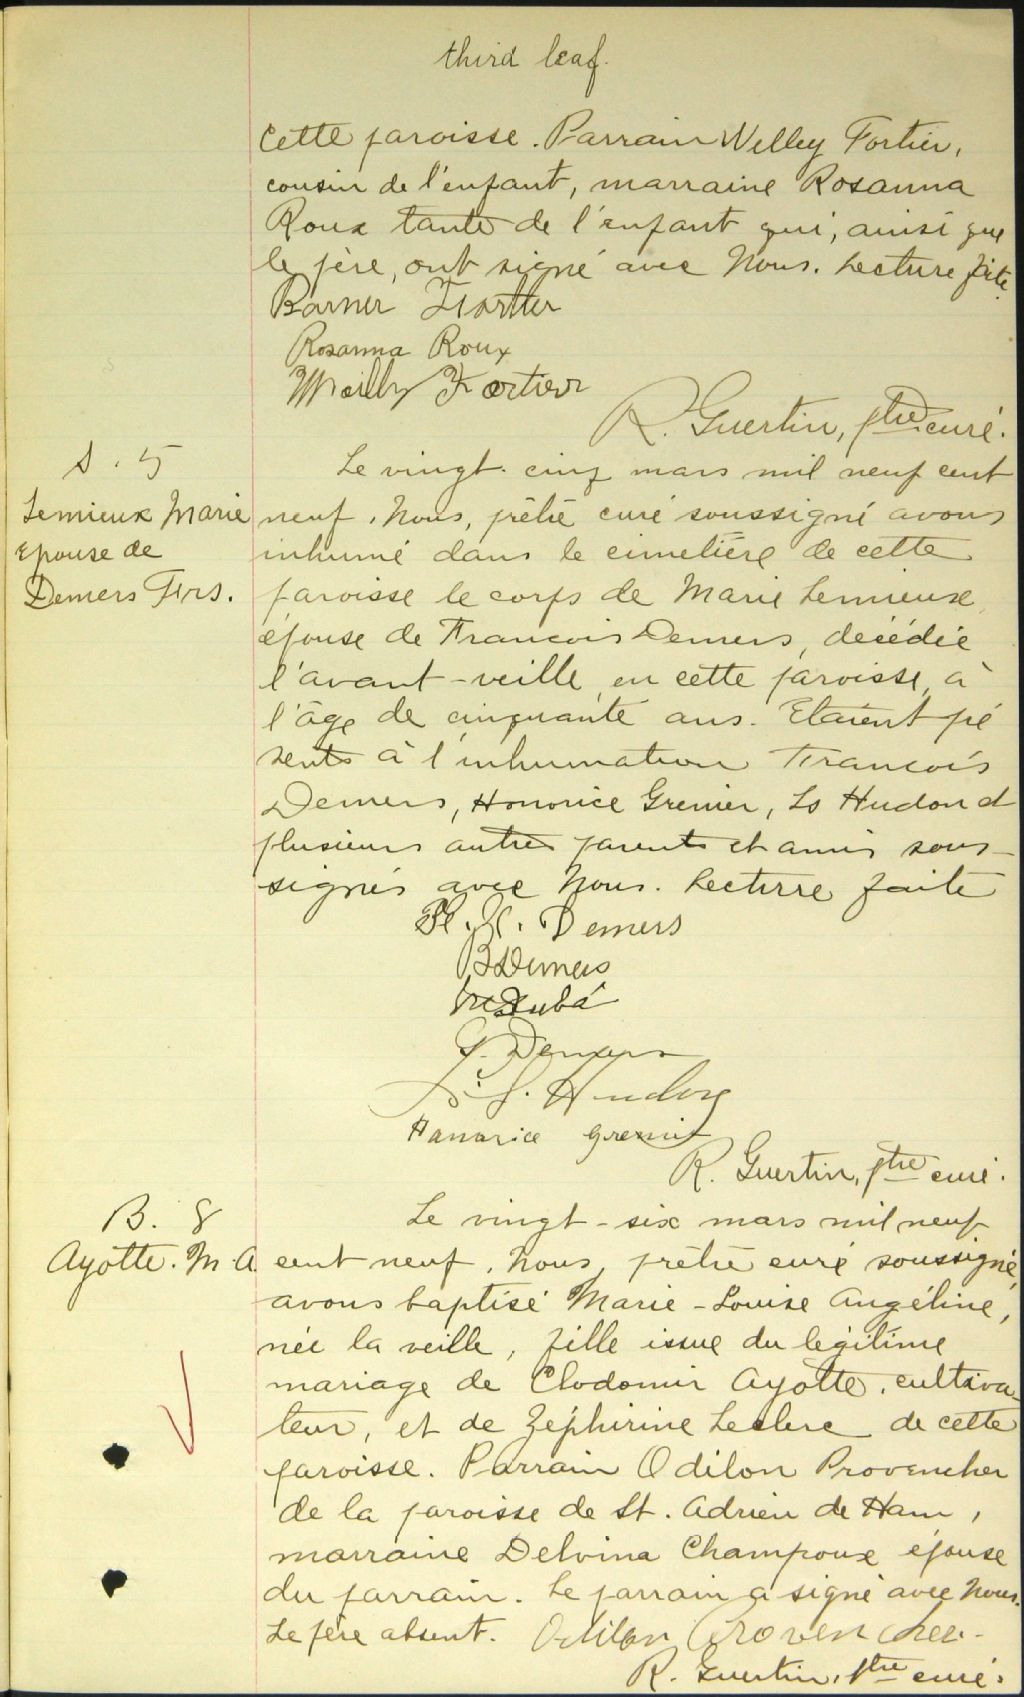 third leaf.
cette paroisse. Parrain Willey Fortier,
cousin de l'enfant, marraine Rosanna
Roux tante de l'enfant qui, ainsi que
le père, ont signé avec Nous. Lecture faite.
Rosanna Roux
Fortier
R. Guertin, ptre curé.
S. 5
Lemieux Marie
Epouse de
Demers Frs.
Le vingt-cinq mars mil neuf cent
neuf, Nous, prêtre curé soussigné avons
inhumé dans le cimetière de cette
paroisse le corps de Marie Lemieux,
épouse de Francois Demers, décédée
l'avant-veille, en cette paroisse, à
l'âge de cinquante ans. Etaient pré
sents à l'inhumation Francois
Demers, Honorice Grenier, Ls Hudon et
plusieurs autres parents et amis sous-
signés avec Nous. Lecture faite
Demers
B Demers
Dubé
G. Demers
L. J. Hudon
Hanorice Grenier
R. Guertin, ptre curé.
B. 8
Ayotte. M. A.
Le vingt-six mars mil neuf
cent neuf, Nous, prêtre curé soussigné,
avons baptisé Marie-Louise Angéline,
née la veille, fille issue du légitime
mariage de Clodomir Ayotte, cultiva-
teur, et de Zéphirine Leclerc de cette
paroisse. Parrain Odilon Provencher
de la paroisse de St. Adrien de Ham,
marraine Delvina Champoux épouse
du parrain. Le parrain a signé avec Nous.
Le père absent. Odilon Provencher
R. Guertin, ptre curé.